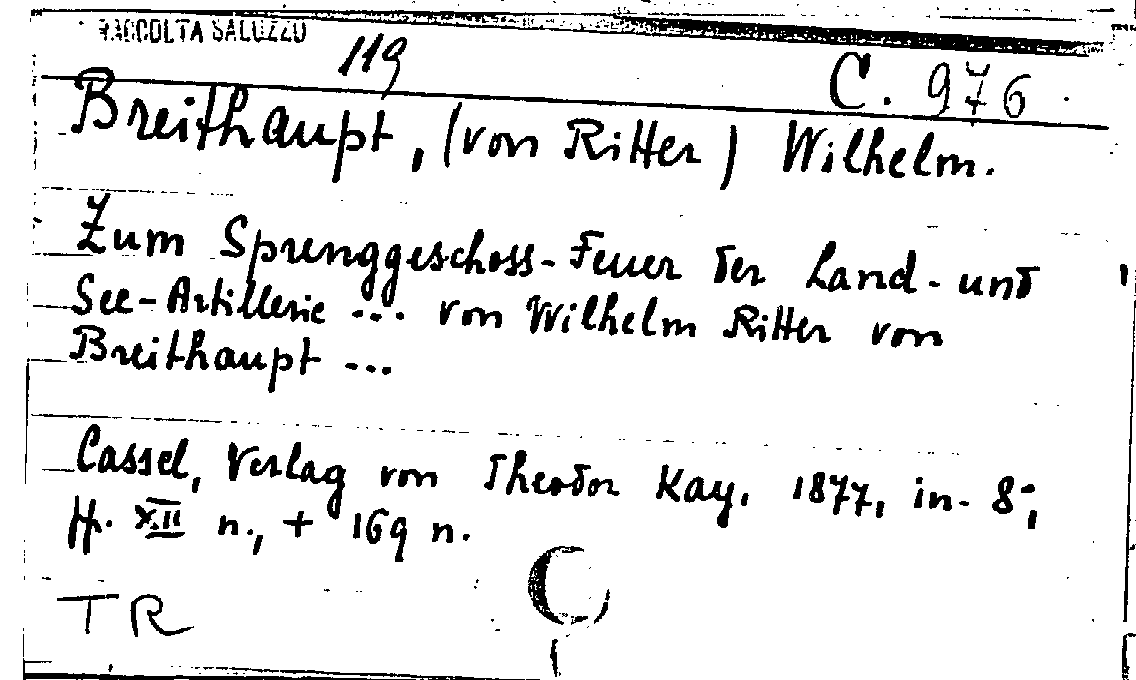 RACCOLTA SALUZZO
119
C. 976
Breithaupt, (von Ritter) Wilhelm.
Zum Sprenggeschoss-Feuer der Land- und
See-Artillerie ... von Wilhelm Ritter von
Breithaupt ...
Cassel, Verlag von Theodor Kay. 1877, in-8°;
pp. XII n., + 169 n.
TR